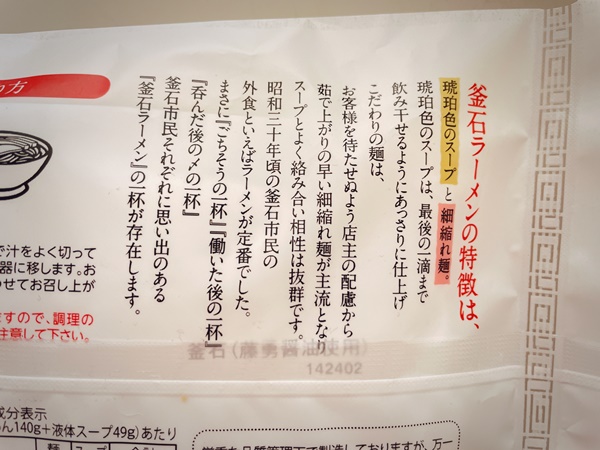 釜石ラーメンの特徴は、
琥珀色のスープと細縮れ麺。
琥珀色のスープは、最後の一滴まで
飲み干せるようにあっさりに仕上げ
こだわりの麺は、
お客様を待たせぬよう店主の配慮から
茹で上がりの早い細縮れ麺が主流となり
スープとよく絡み合い相性は抜群です。
昭和三十年頃の釜石市民の
外食といえばラーメンが定番でした。
まさに『ごちそうの一杯』『働いた後の一杯』
『呑んだ後の〆の一杯』
釜石市民それぞれに思い出のある
『釜石ラーメン』の一杯が存在します。
の方
で汁をよく切って
器に移します。お
わせてお召し上が
ますので、調理の
注意して下さい。
釜石(藤勇醤油使用)
142402
成分表示
めん140g+液体スープ49g)あたり